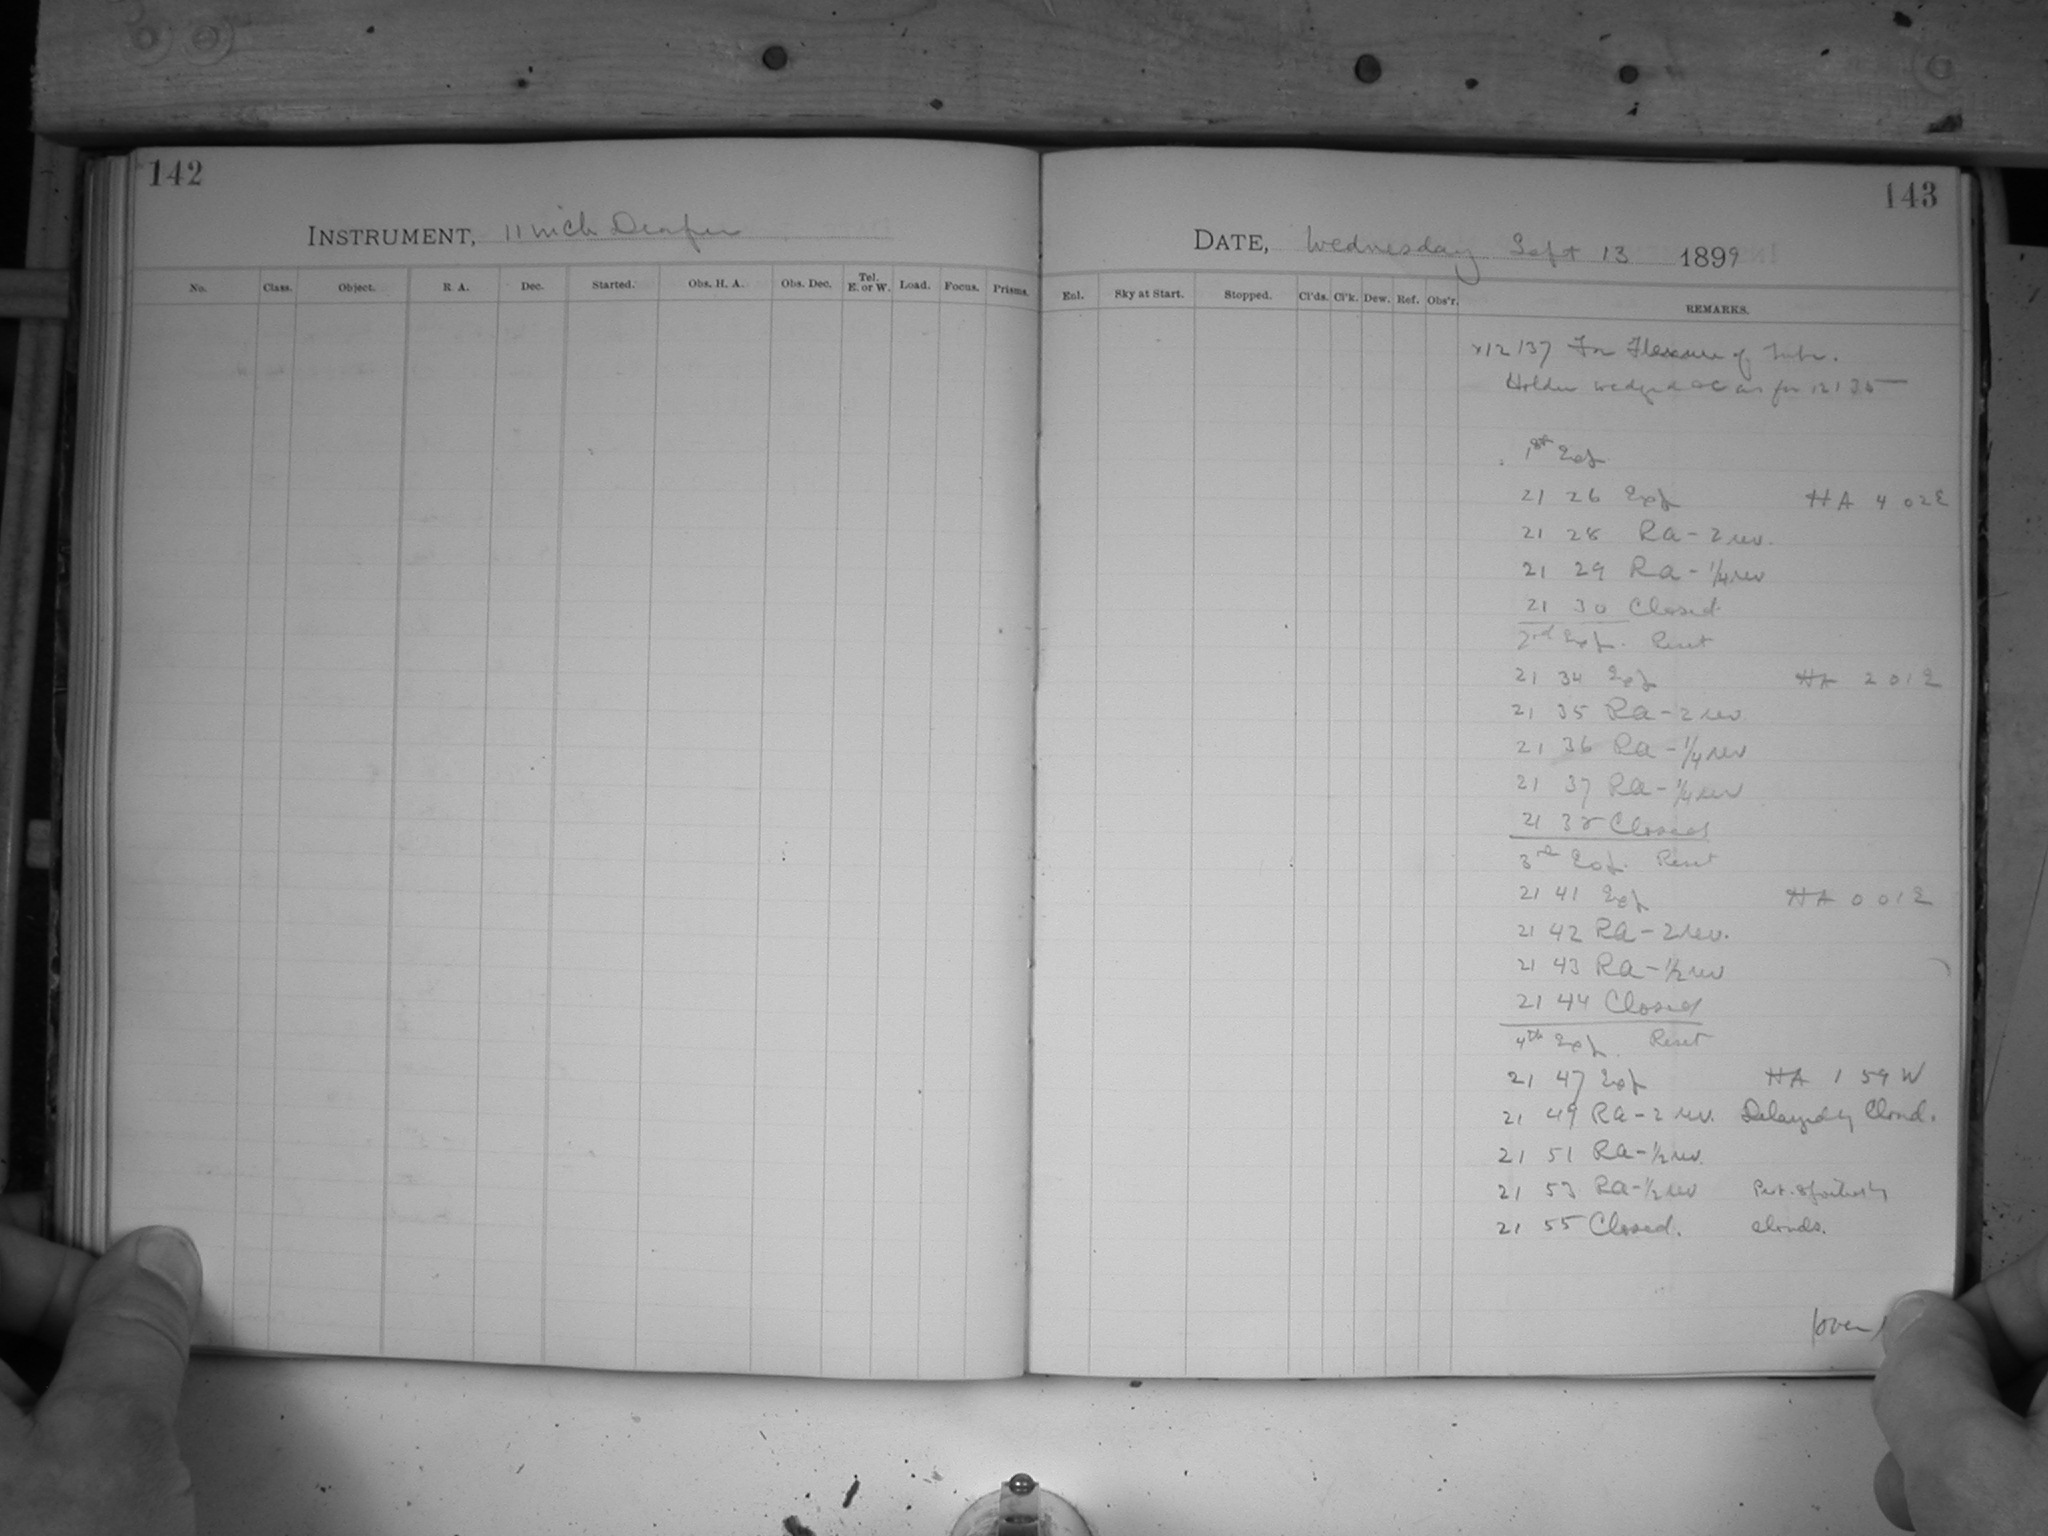 142
INSTRUMENT, 11 inch Draper
No. Class. Object. R. A. Dec. Started. Obs. H. A. Obs. Dec. Tel. E. or W. Load. Focus. Prisms.
143
DATE, Wednesday Sept 13 1899
Enl. Sky at Start. Stopped. Cl'ds. Cl'k. Dew. Ref. Obs'r. REMARKS.
x12137 For Flexure of Tube.
Holder wedged &c as for 12135
1st Exp.
21 26 Exp HA 4 02 E
21 28 RA - 2 rev.
21 29 RA - 1/4 rev
21 30 Closed
2nd Exp. Reset
21 34 Exp HA 2 01 E
21 35 RA - 2 rev
21 36 RA - 1/4 rev
21 37 RA - 1/4 rev
21 38 Closed
3rd Exp. Reset
21 41 Exp HA 0 01 E
21 42 RA - 2 rev.
21 43 RA - 1/2 rev
21 44 Closed
4th Exp. Reset
21 47 Exp HA 1 59 W
21 49 RA - 2 rev. Delayed by Cloud.
21 51 RA - 1/2 rev.
21 53 RA - 1/2 rev
21 55 Closed. clouds.
(over)